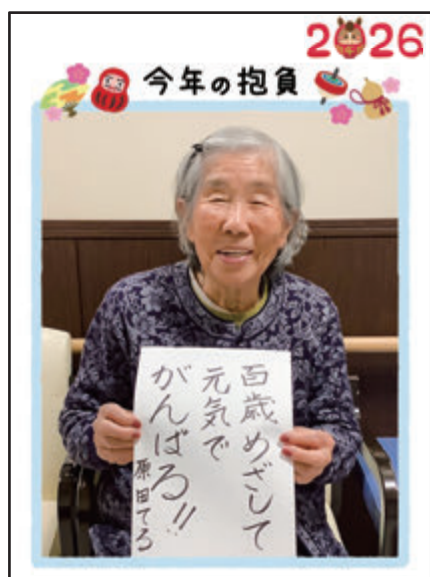 2026
今年の抱負
百歳めざして
元気で
がんばる!!
原田てる